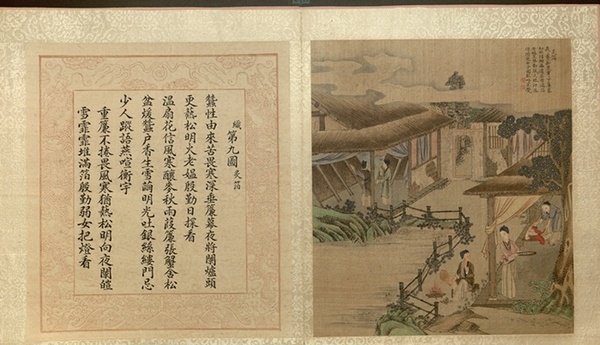 織 第九圖 炙箔
蠶性由來苦畏寒深垂簾幕夜將闌爐頭
更爇松明火老媼殷勤日探看
溫扇花信風寒釀麥秋雨葭簾張蟹舍松
盆煖蠶户香生雪繭明光吐銀絲縷門忌
少人蹤語燕喧衡宇
重簾不捲畏風寒猶爇松明向夜闌皚
雪霏霏堆滿箔殷勤弱女把燈看